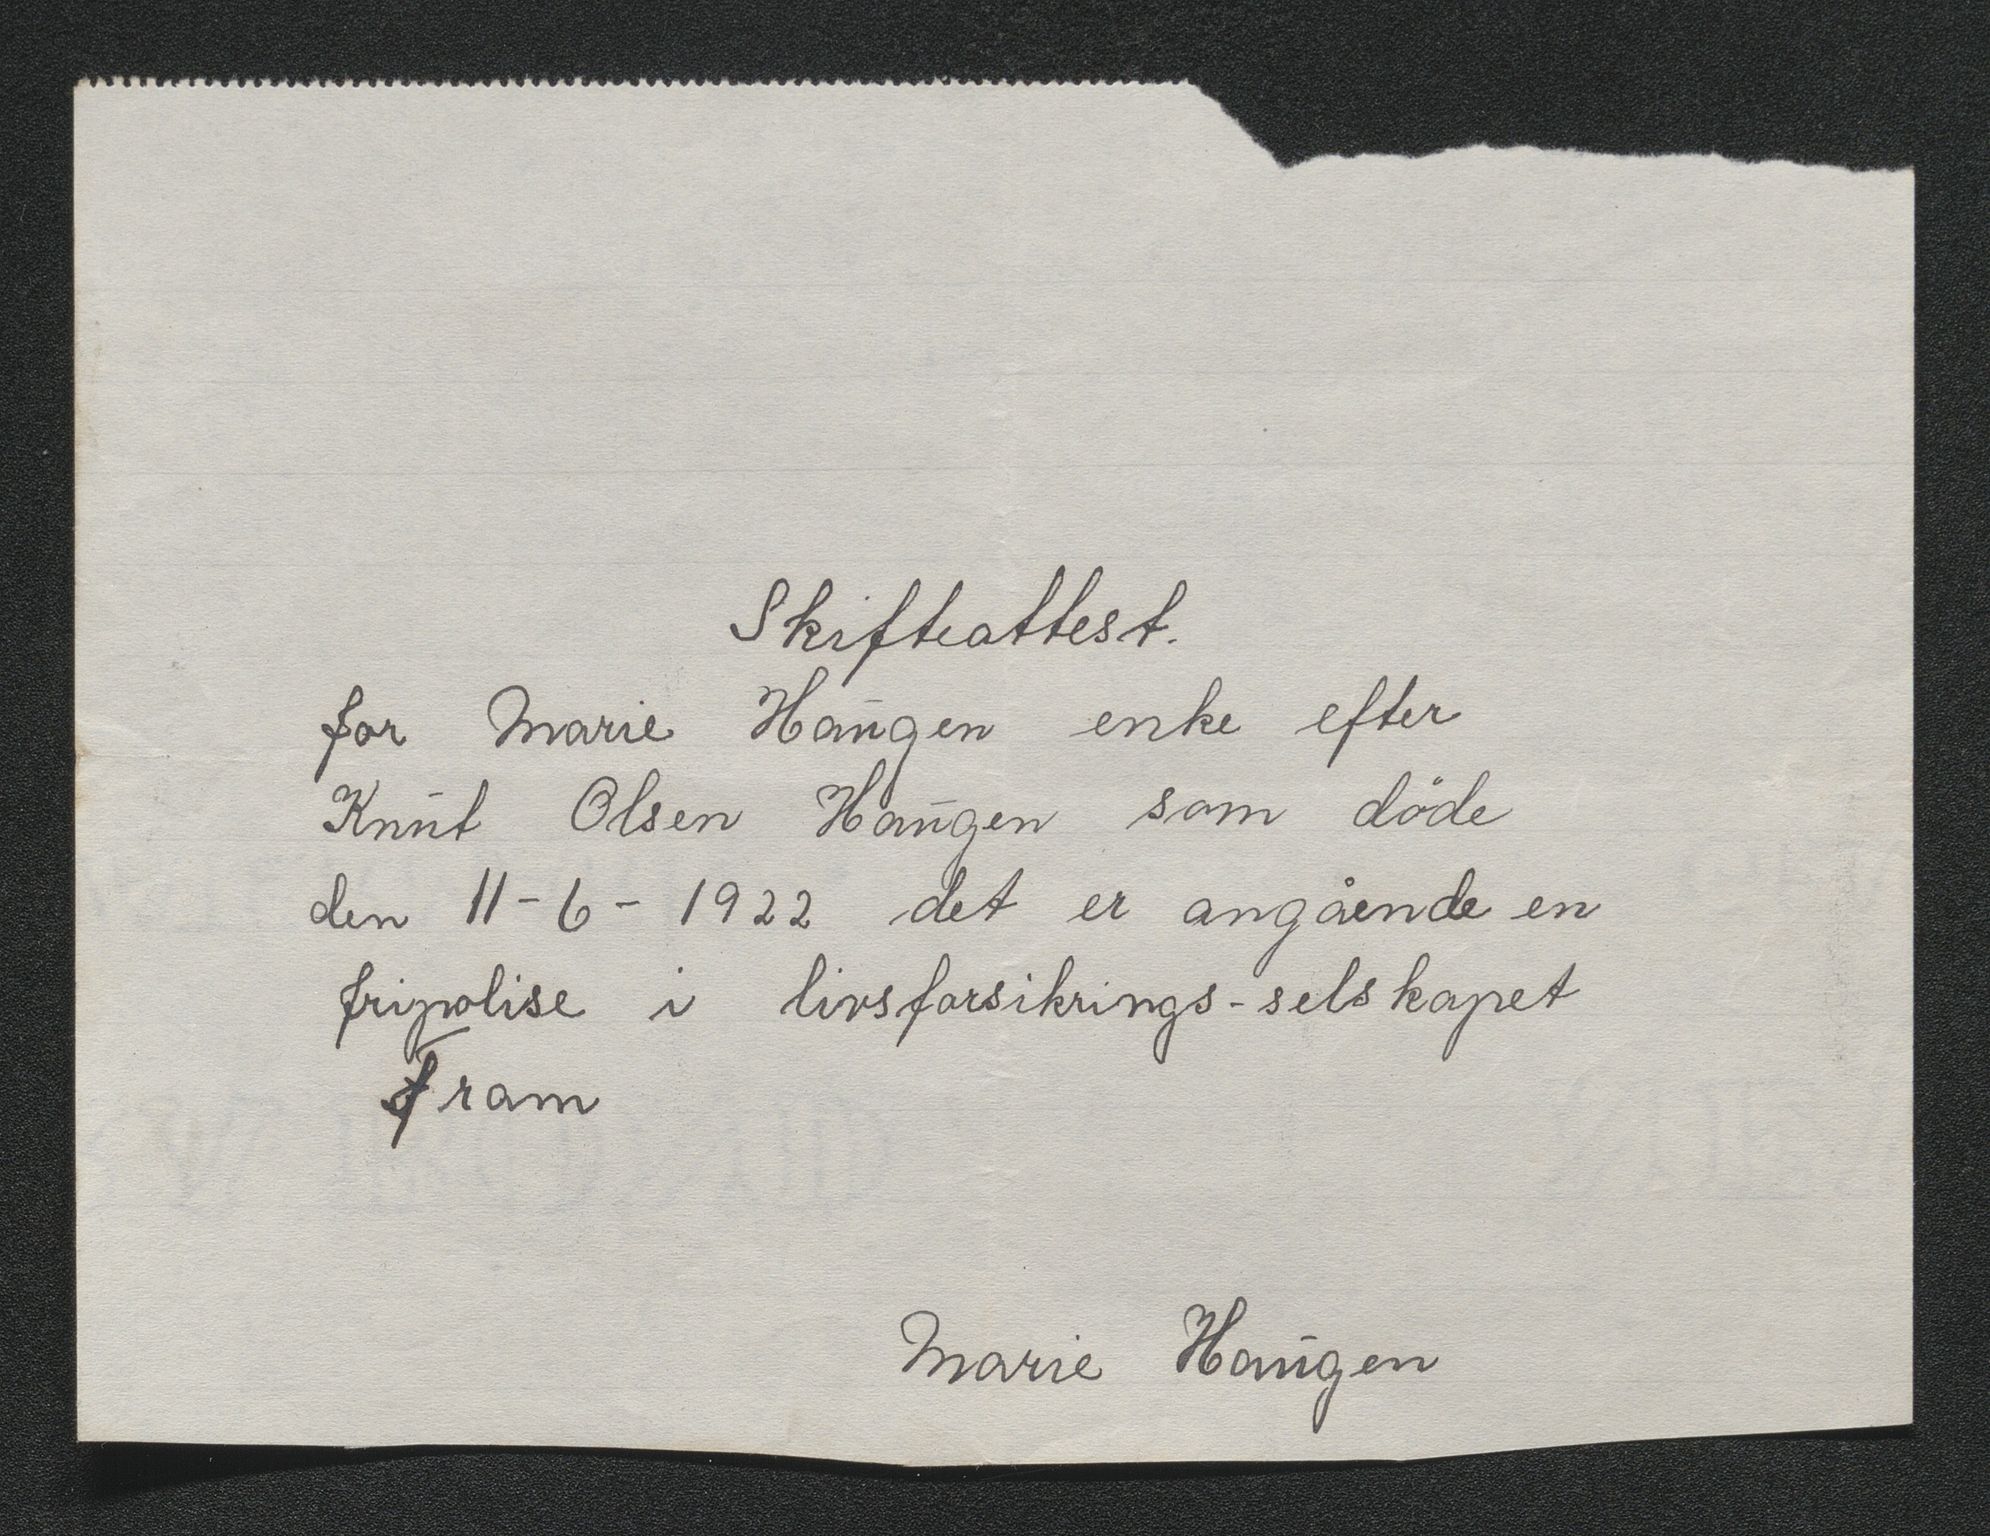 Skifteattest.
for Marie Haugen enke efter
Knut Olsen Haugen som döde
den 11-6-1922 det er angående en
fripolise i livsforsikrings-selskapet
fram
Marie Haugen